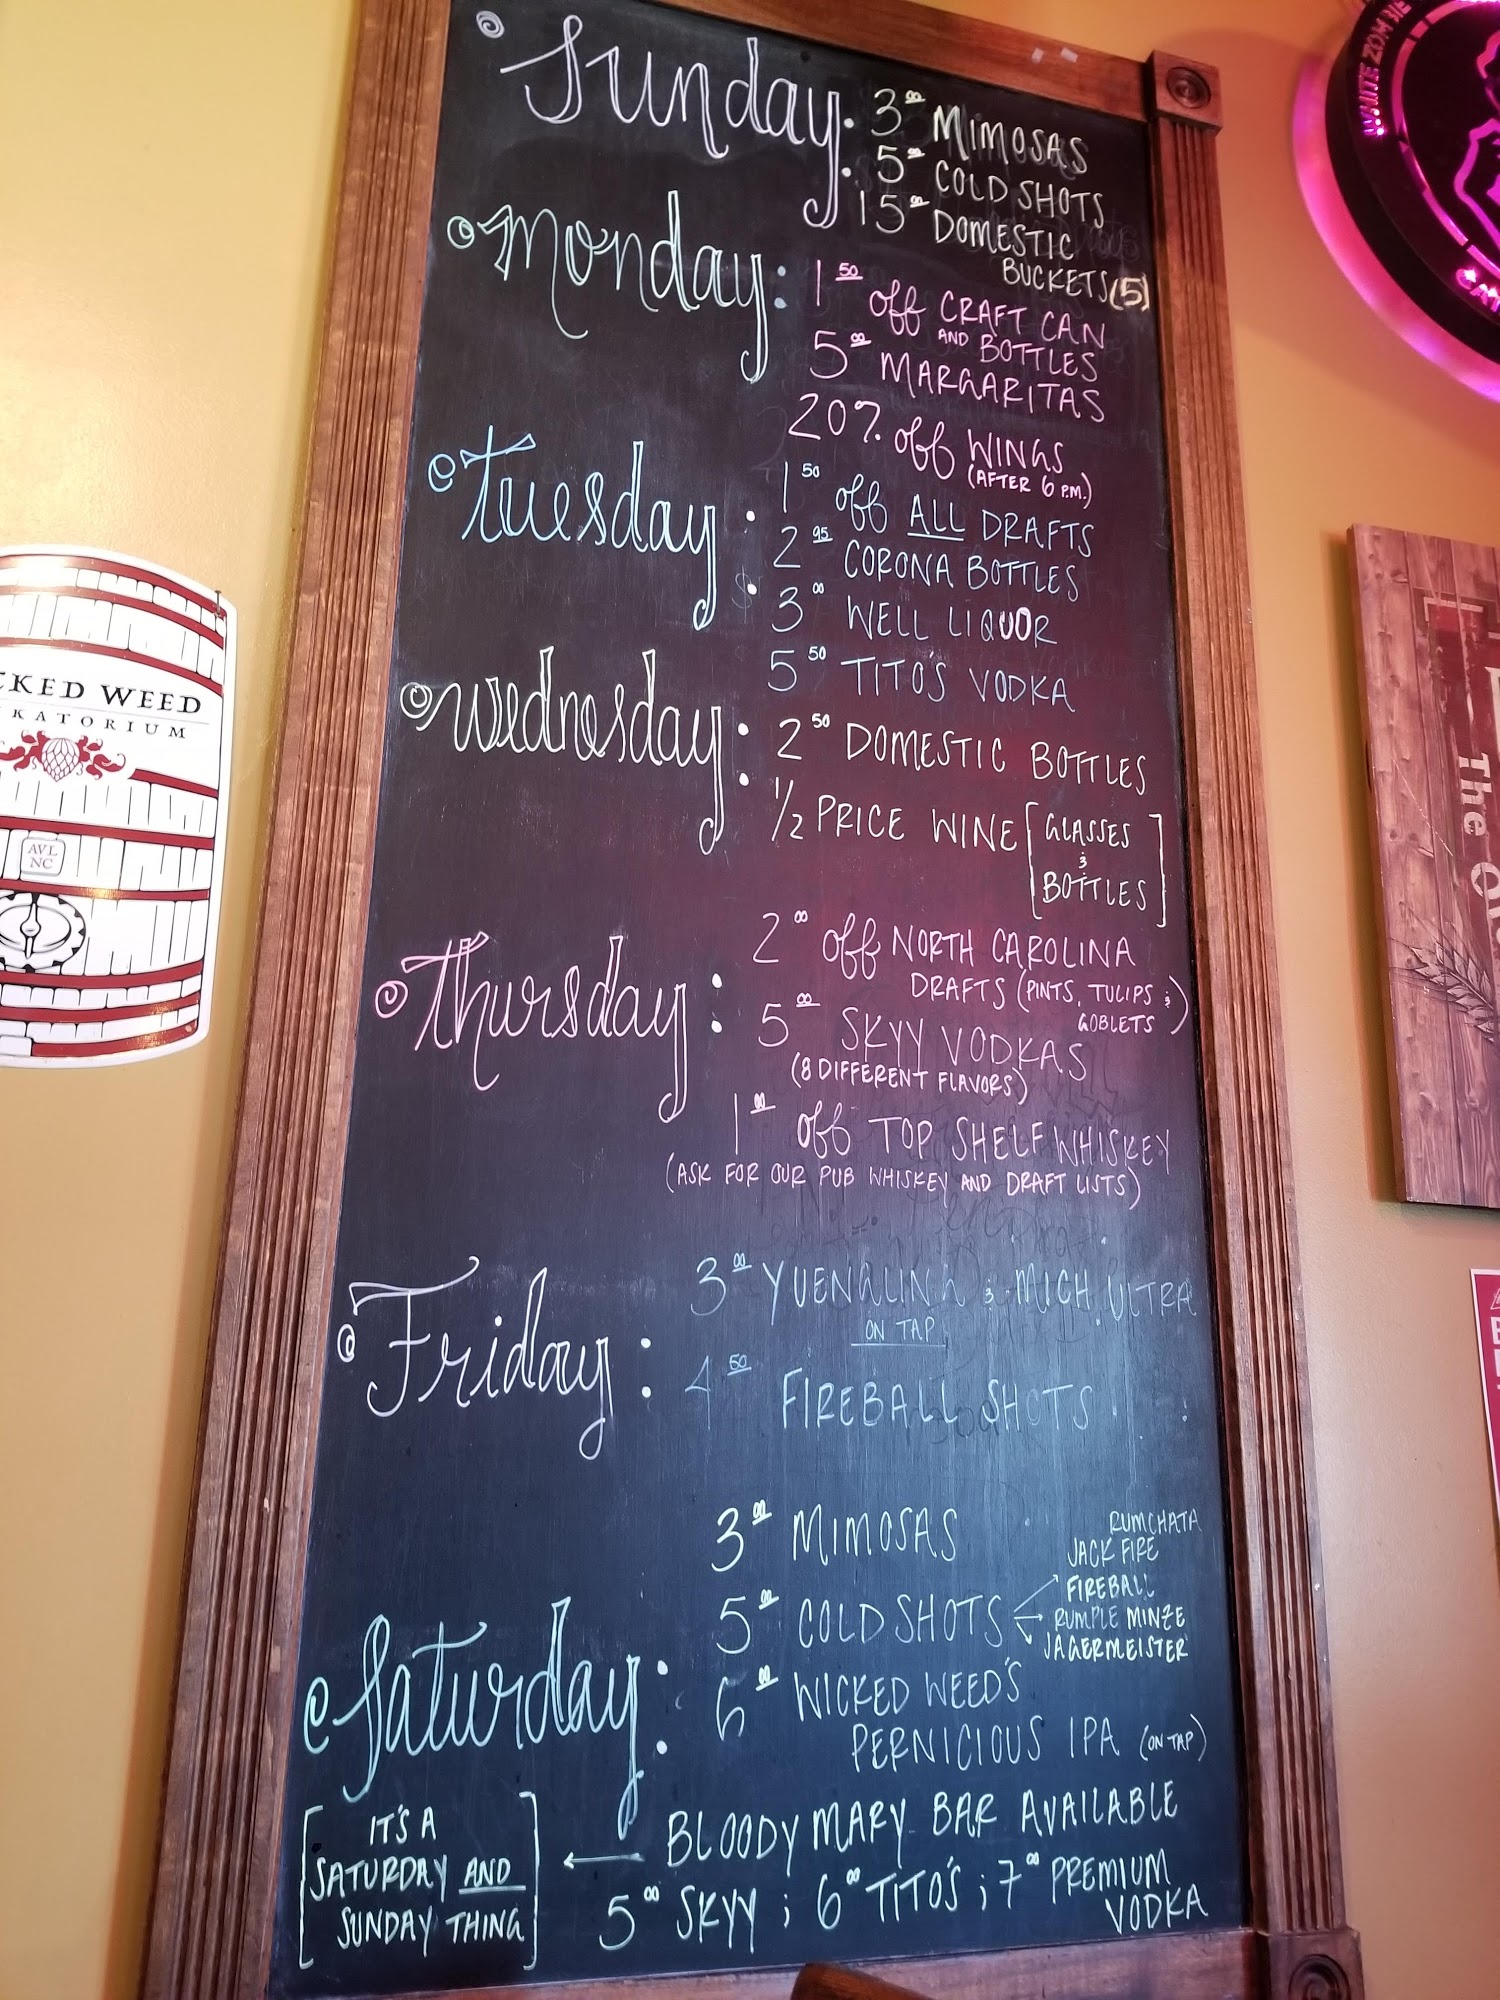 Sunday
3.00 MIMOSAS
5.00 COLD SHOTS
15.00 DOMESTIC
BUCKETS (5)
Monday:
1.50 off CRAFT CAN
AND BOTTLES
5.00 MARGARITAS
20% off WINGS
(AFTER 6 P.M.)
Tuesday:
1.50 off ALL DRAFTS
2.95 CORONA BOTTLES
3.00 WELL LIQUOR
5.50 TITO'S VODKA
Wednesday:
2.50 DOMESTIC BOTTLES
1/2 PRICE WINE [GLASSES
&
BOTTLES]
Thursday:
2.00 off NORTH CAROLINA
DRAFTS (PINTS, TULIPS &
GOBLETS)
5.00 SKYY VODKAS
(8 DIFFERENT FLAVORS)
1.00 off TOP SHELF WHISKEY
(ASK FOR OUR PUB WHISKEY AND DRAFT LISTS)
Friday:
3.00 YUENGLING & MICH ULTRA
ON TAP
4.50 FIREBALL SHOTS
Saturday:
3.00 MIMOSAS
5.00 COLD SHOTS
RUMCHATA
JACK FIRE
FIREBALL
RUMPLE MINZE
JAGERMEISTER
6.00 WICKED WEED'S
PERNICIOUS IPA (ON TAP)
BLOODY MARY BAR AVAILABLE
5.00 SKYY ; 6.00 TITO'S ; 7.00 PREMIUM
VODKA
[IT'S A
SATURDAY AND
SUNDAY THING]
CKED WEED
KATORIUM
AVL
NC
WHITE ZOMBIE
The